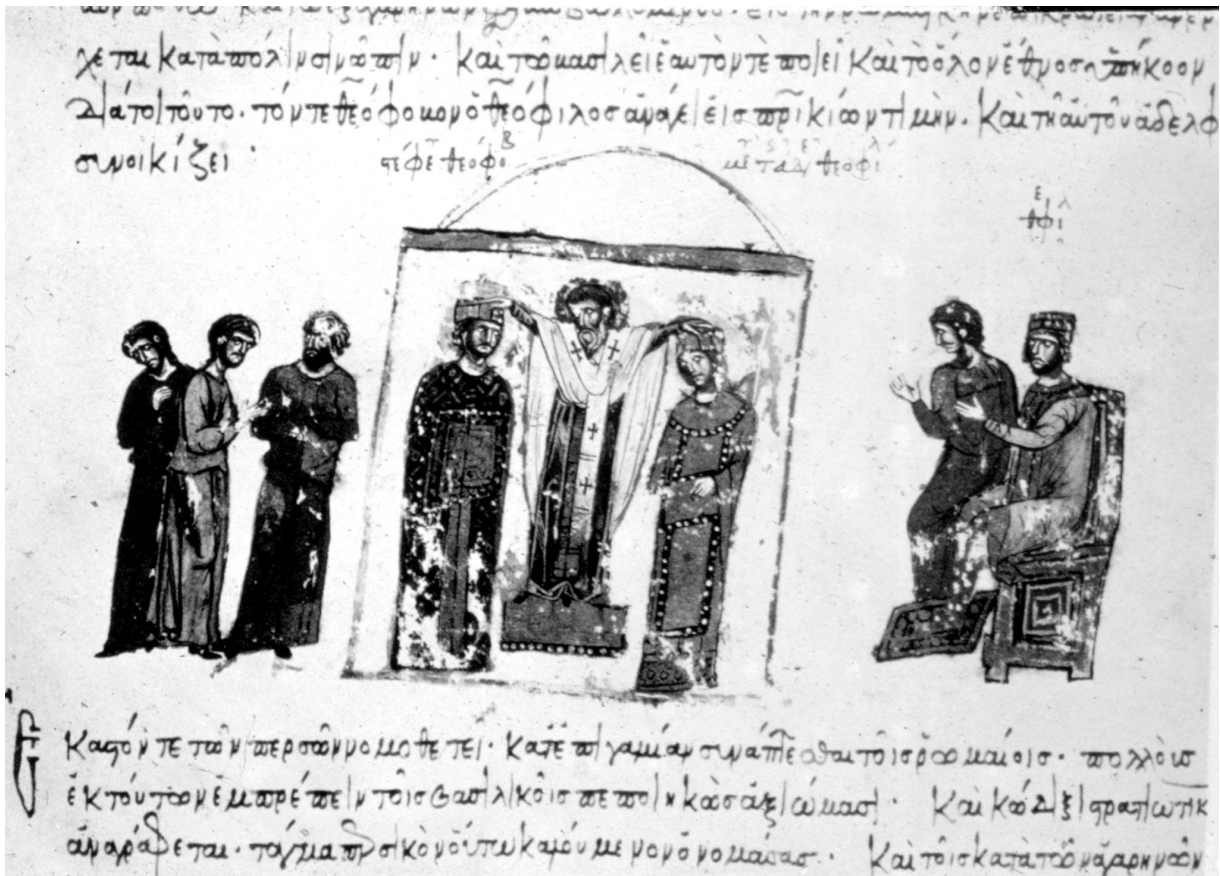 χεται κατὰ πόλιν σινώπην. καὶ τῶ βασιλεῖ ἑαυτόν τε ποιεῖ καὶ τὸ ὅλον ἔθνος ὑπήκοον
διατοῦτο. τόν τε θεόφοβον ὁ θεόφιλος ἀνάγει εἰς πρικίων τιμήν. καὶ τὴν αὐτοῦ ἀδελφ
συνοικίζει
θεόφοβ
θεοφιλ
θεφιλ
ἕκαστόν τε τῶν περσῶν νομοθετεῖ. κατ' ἐπιγαμίαν συνάπτεσθαι τοῖς ῥωμαίοις. πολλοὺς
ἐκ τούτων ἐμπρέπειν τοῖς βασιλικοῖς πεποιηκὼς ἀξιώμασι. καὶ κώδιξι στρατιωτικ
ἀναγράφεται. τάγμα περσικὸν οὕτω καλούμενον ὀνομάσας. καὶ τοῖς κατὰ τῶν ἀγαρηνῶν